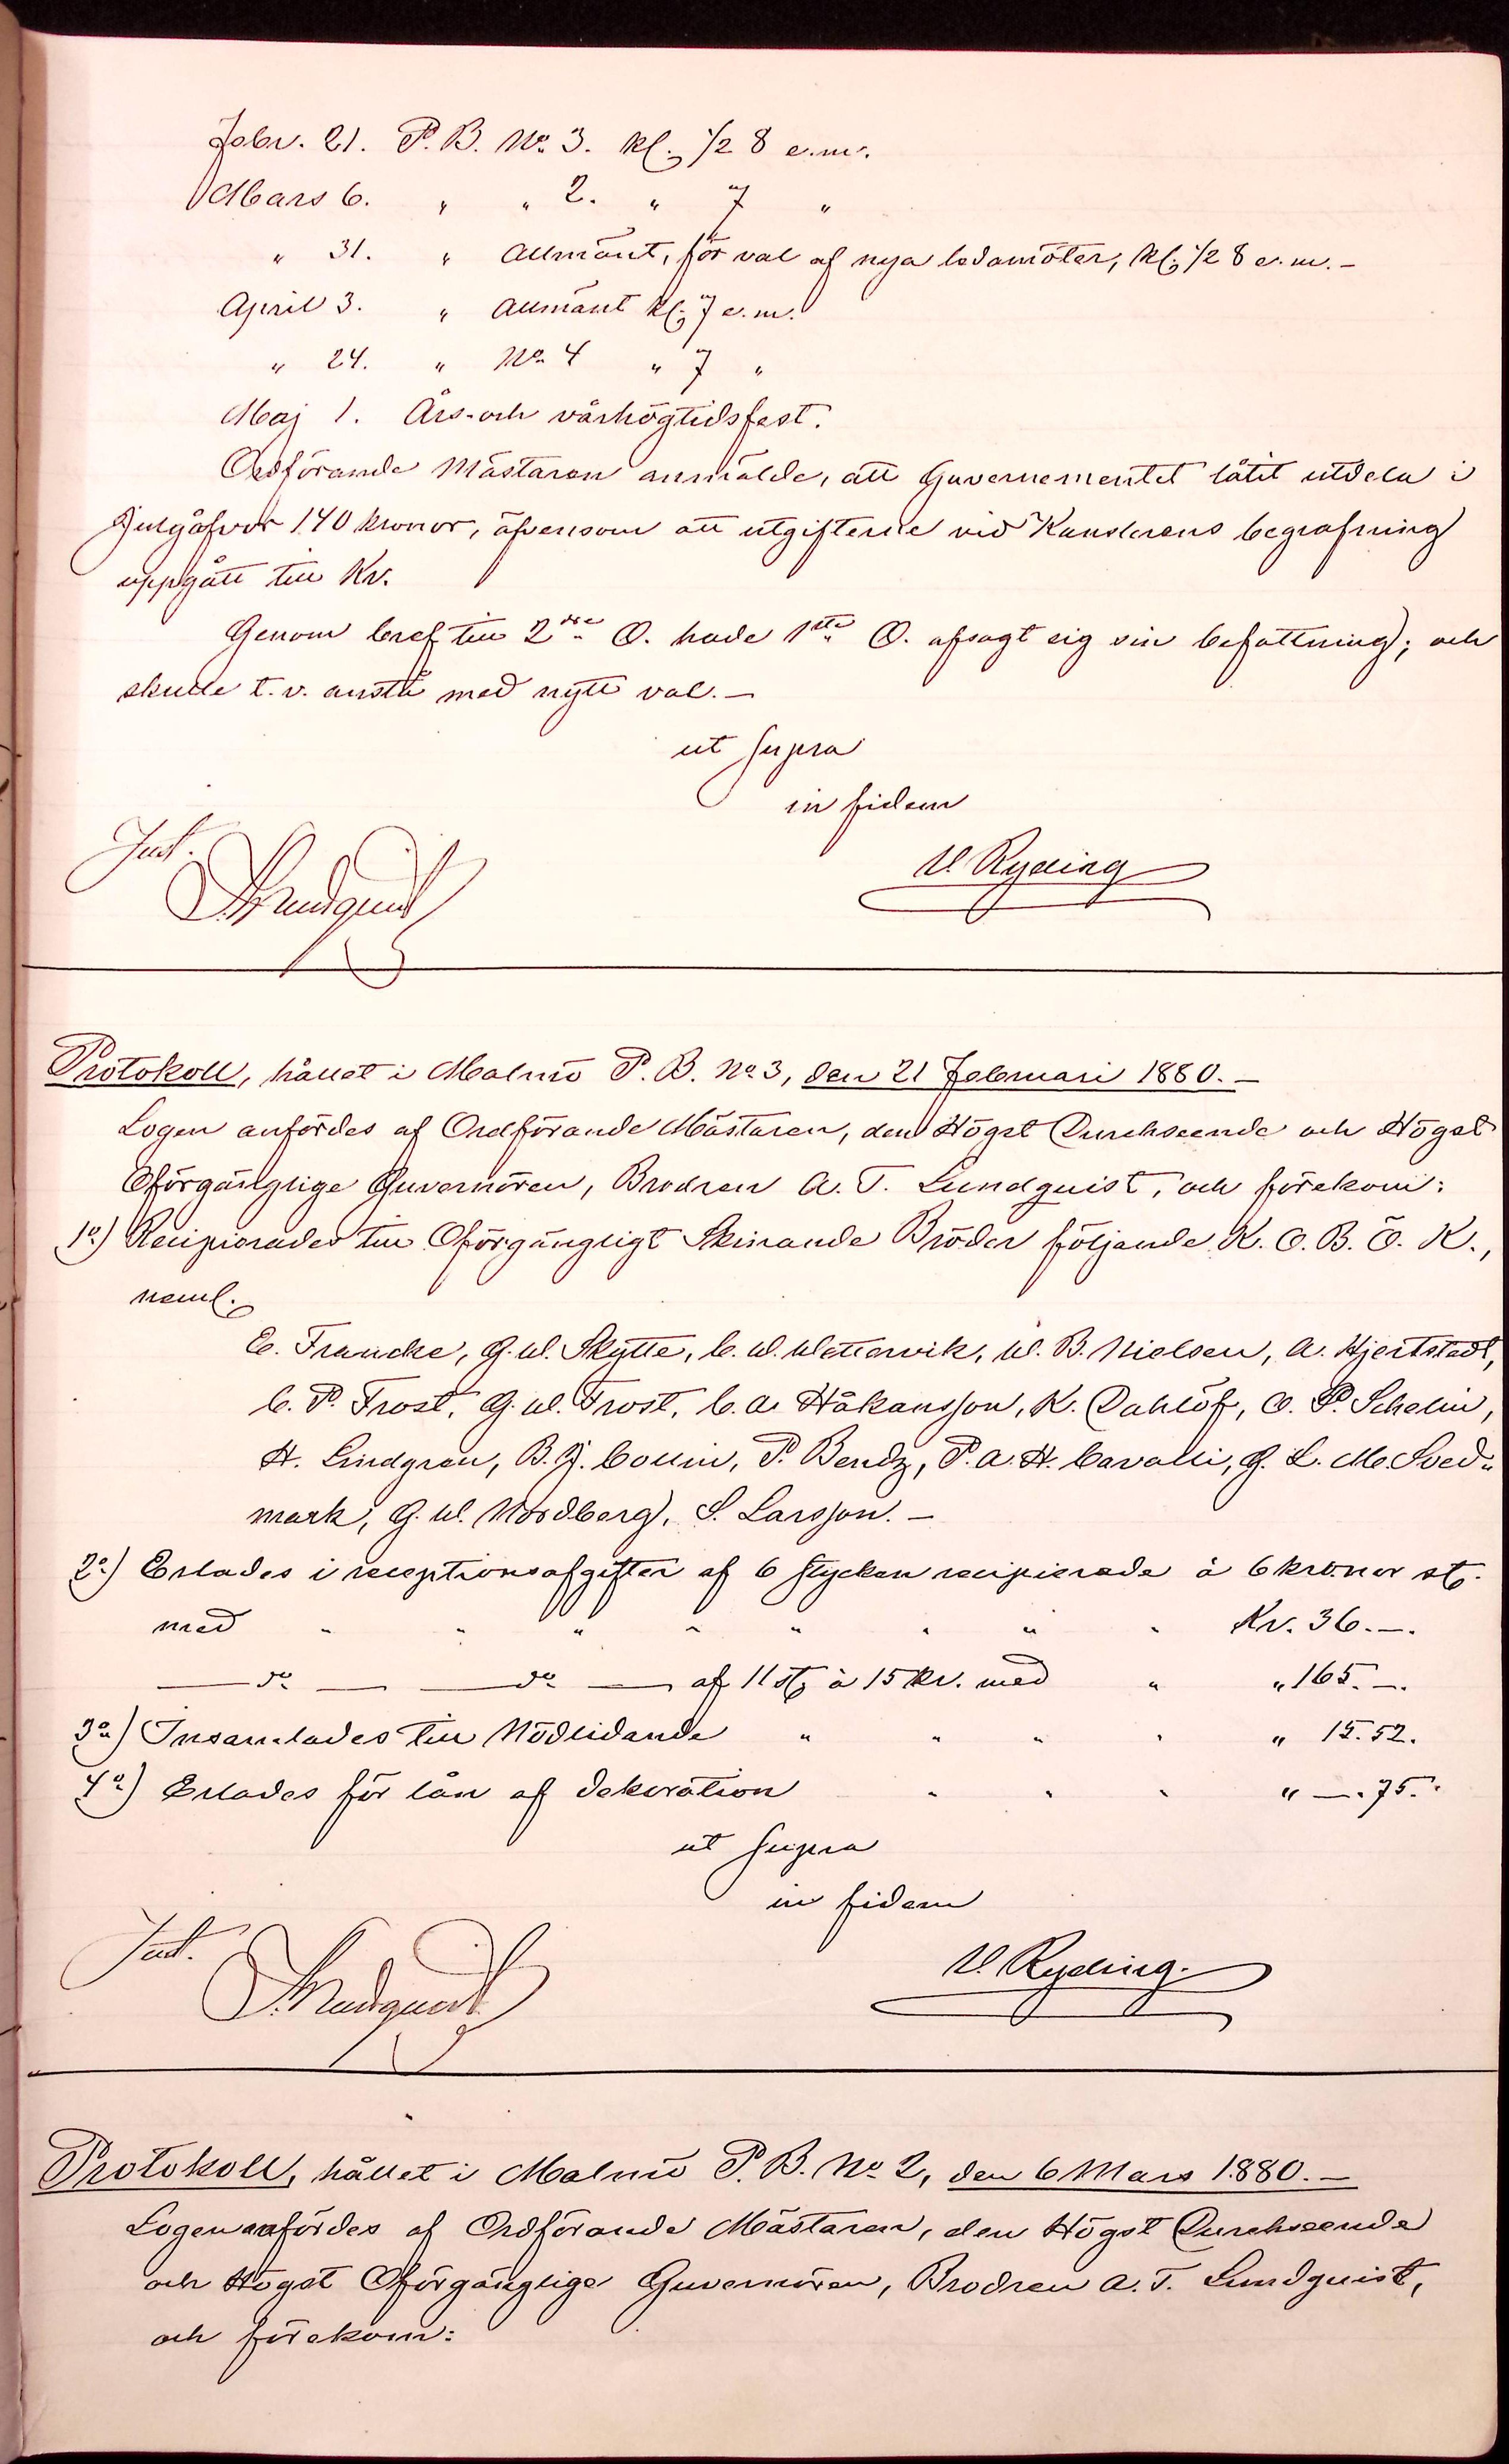 Febr. 21. P. B. No. 3. kl. 1/2 8 e.m.
Mars 6. " " 2. " 7 "
" 31. " allmänt, för val af nya ledamöter, kl. 1/2 8 e.m. –
April 3. " allmänt kl. 7 e.m.
" 24. " No. 4 " 7 "
Maj 1. Års- och vårhögtidsfest.
Ordförande Mästaren anmälde, att Guvernementet låtit utdela i
Julgåfvor 140 kronor, äfvensom att utgifterne vid Kanslerens begrafning
uppgått till Kr.
Genom bref till 2dre O. hade 1ste O. afsagt sig sin befattning; och
skulle t.v. anstå med nytt val. –
ut supra
in fidem
Just.
A. T. Lundquist
V. Ryding
Protokoll, hållet i Malmö P. B. No. 3, den 21 Februari 1880. –
Logen anfördes af Ordförande Mästaren, den Högst Durchseende och Högst
Oförgänglige Guvernören, Brodren A. T. Lundquist, och förekom:
1o.) Recipierades till Oförgängligt Skinande Bröder följande K. O. B. Ö. K.,
neml.
E. Francke, G. W. Skytte, C. W. Wettervik, W. B. Nielsen, A. Hjertstedt,
C. P. Frost, G. W. Frost, C. A. Håkansson, K. Dahlöf, O. P. Schelin,
H. Lindgren, B. J. Collin, P. Bendz, P. A. H. Cavalli, G. L. M. Sved-
mark, G. W. Nordberg, S. Larsson. –
2o.) Erlades i receptionsafgifter af 6 stycken recipierade à 6 kronor st.
med " " " " " " " " Kr. 36. –.
— do — — do — af 11 st. à 15 kr. med " " 165. –.
3o.) Insamlades till Nödlidande " " " " " 15. 52.
4o.) Erlades för lån af dekoration " " " " –. 75.
ut supra
in fidem
Just.
A. T. Lundquist
V. Ryding.
Protokoll, hållet i Malmö P. B. No. 2, den 6 Mars 1880. –
Logen anfördes af Ordförande Mästaren, den Högst Durchseende
och Högst Oförgänglige Guvernören, Brodren A. T. Lundquist,
och förekom: